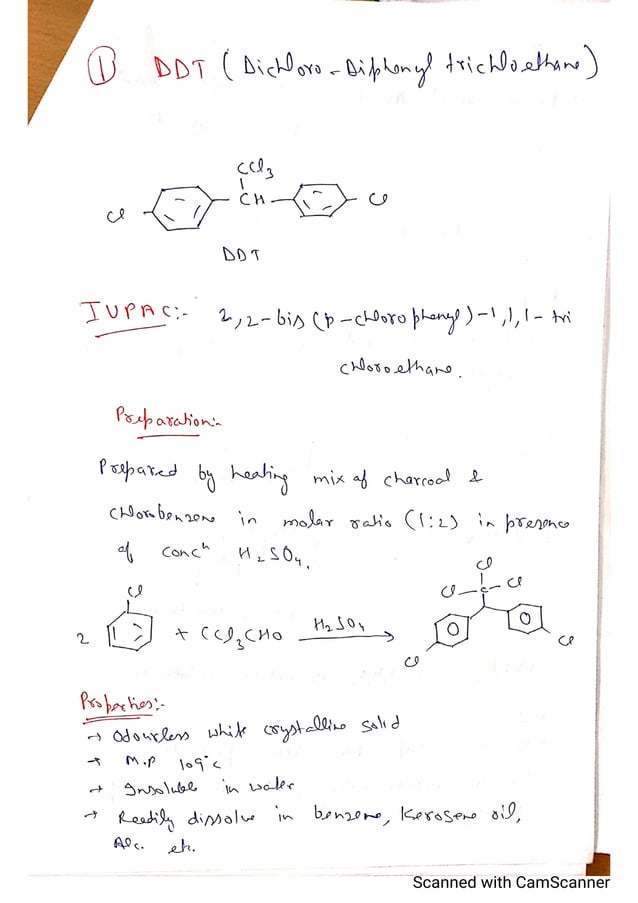 ① DDT (Dichloro-Diphenyl trichloethane)
CCl3
Cl CH Cl
DDT
IUPAC:- 2,2-bis(p-chlorophenyl)-1,1,1-tri
chloroethane.
Preparation:-
Prepared by heating mix of charcoal &
chlorobenzene in molar ratio (1:2) in presence
of conch H2SO4.
Cl Cl
Cl-C-Cl
2 + CCl3CHO H2SO4
Cl Cl
Properties:-
→ Odourless white crystalline solid
→ M.P 109°c
→ Insoluble in water
→ Readily dissolve in benzene, Kerosene oil,
Alc. etc.
Scanned with CamScanner